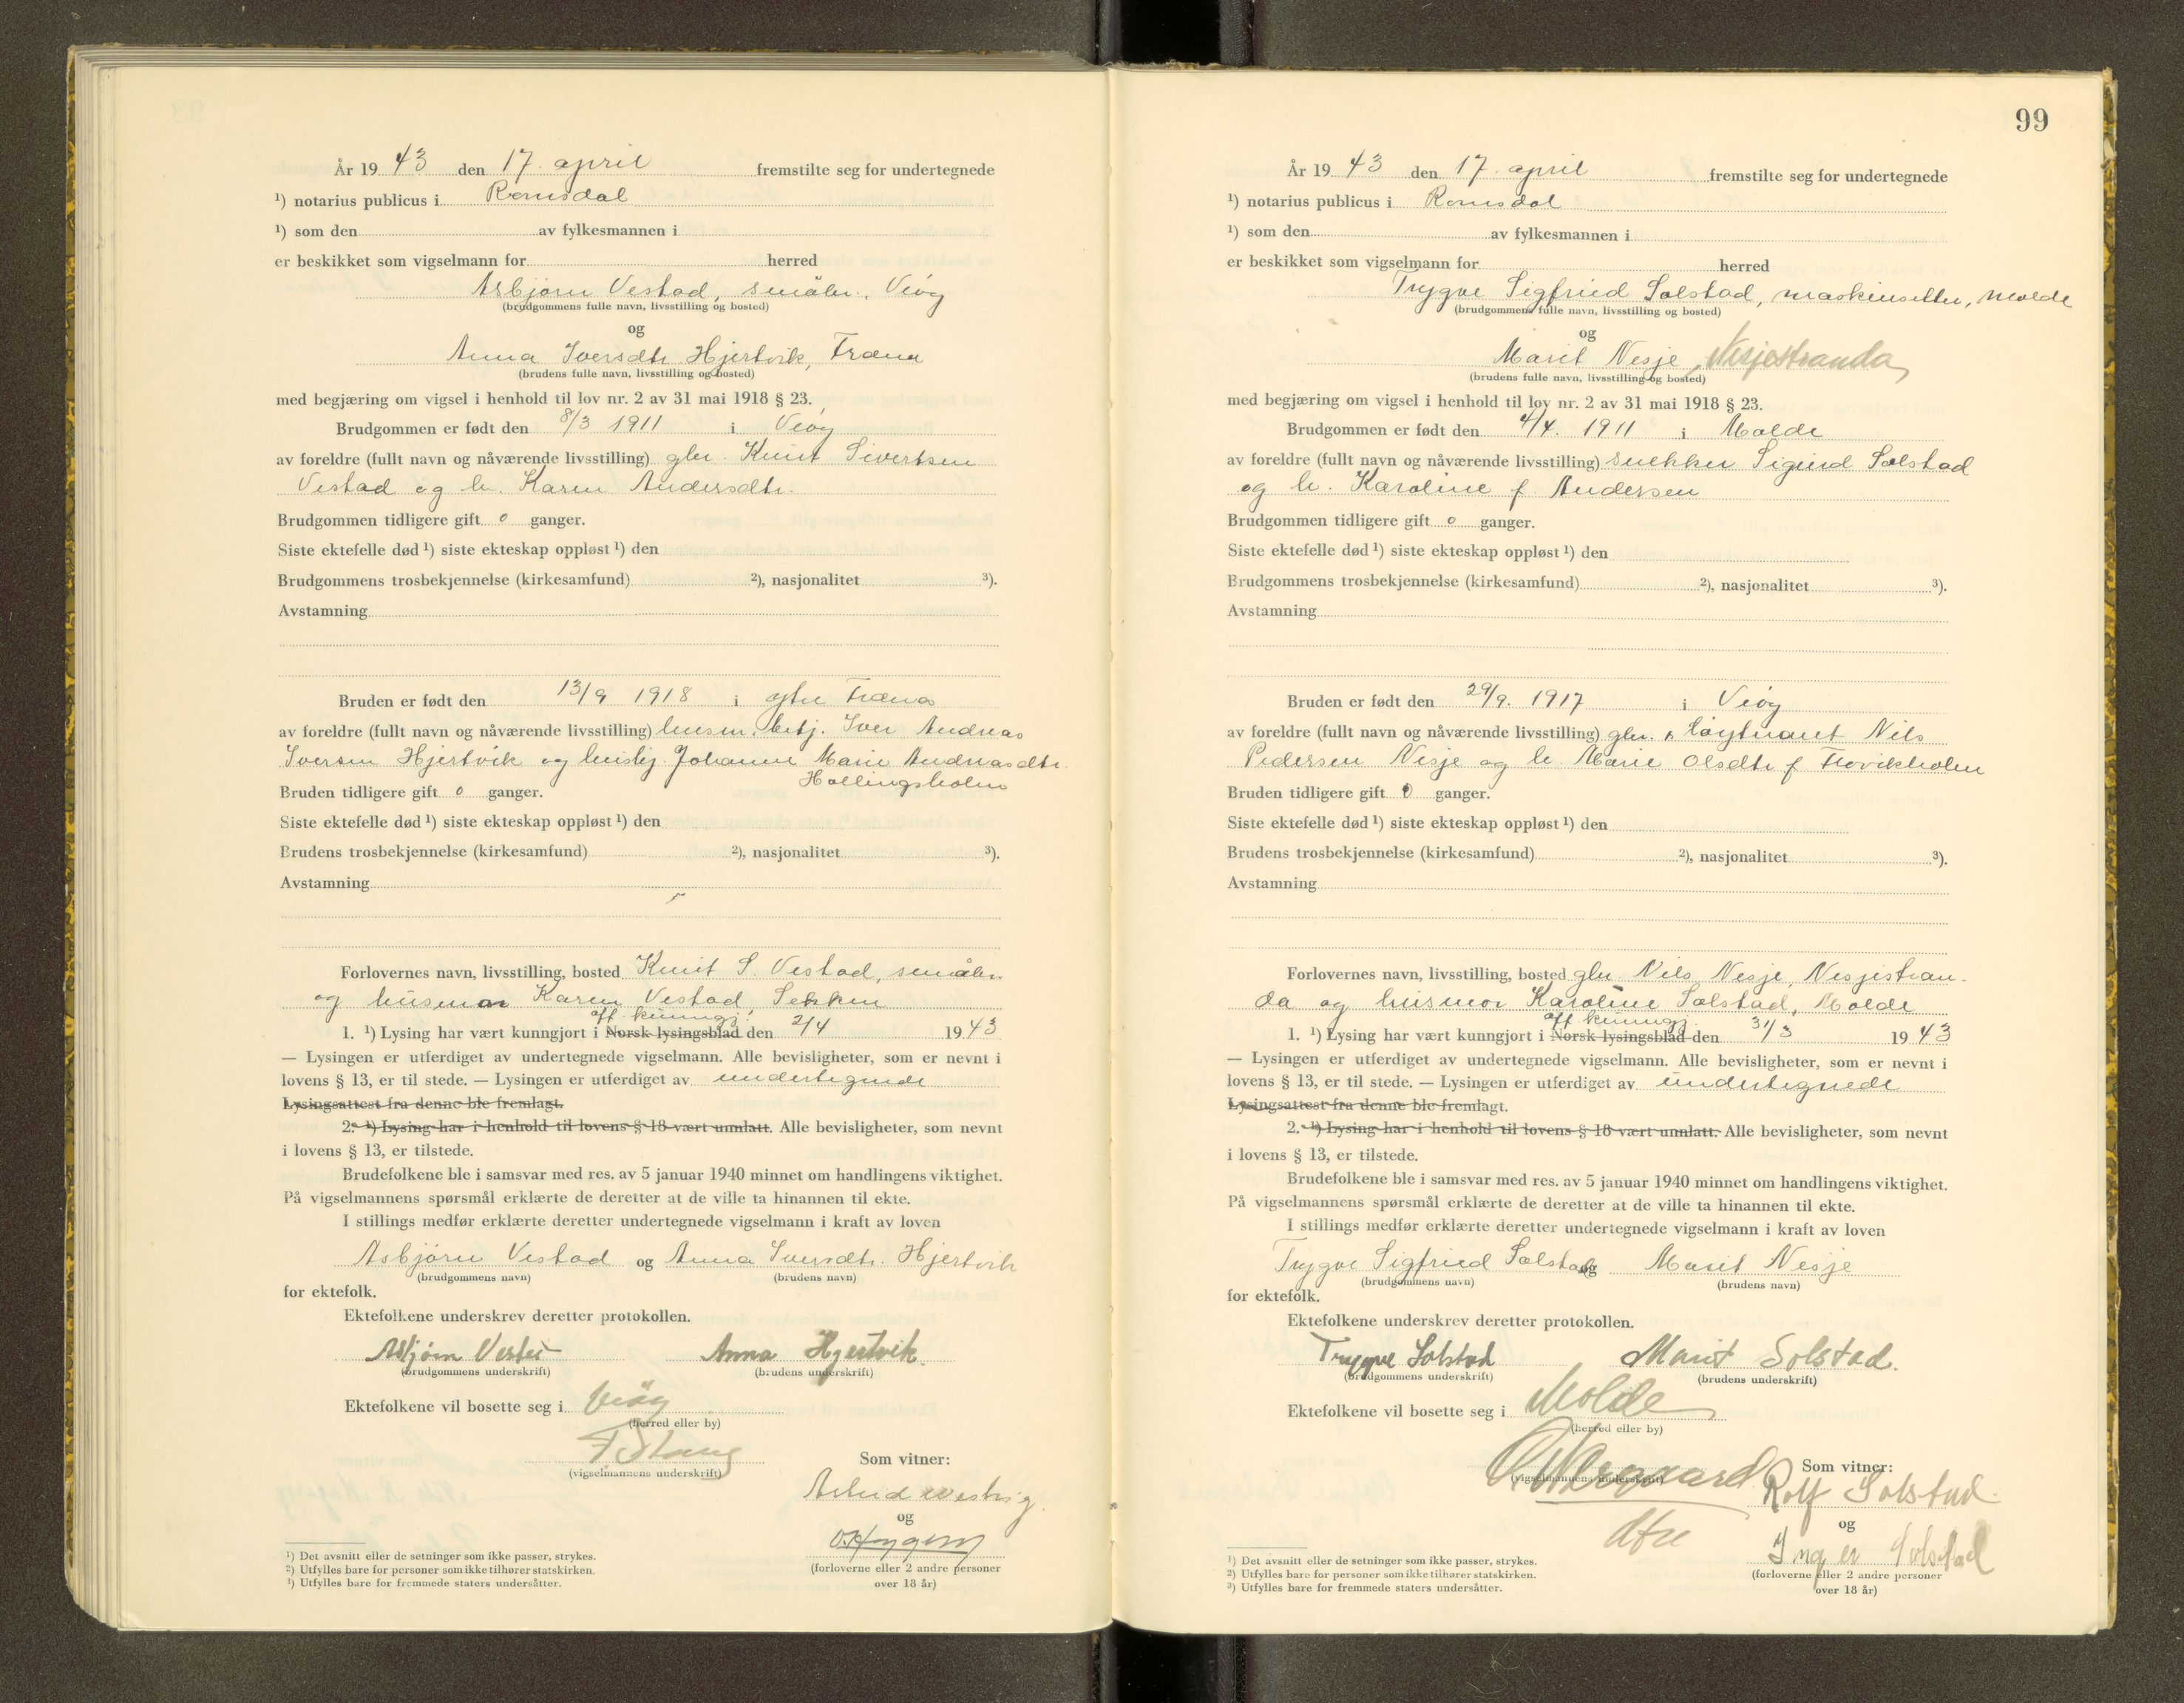 År 19 43 den 17. april fremstilte seg for undertegnede
¹) notarius publicus i Romsdal
¹) som den av fylkesmannen i
er beskikket som vigselmann for herred
Asbjørn Vestad, småbr., Veøy
(brudgommens fulle navn, livsstilling og bosted)
og
Anna Iversdtr Hjertvik, Fræna
(brudens fulle navn, livsstilling og bosted)
med begjæring om vigsel i henhold til lov nr. 2 av 31 mai 1918 § 23.
Brudgommen er født den 8/3 1911 i Veøy
av foreldre (fullt navn og nåværende livsstilling) gbr. Knut Sivertsen
Vestad og h. Karen Andersdtr.
Brudgommen tidligere gift 0 ganger.
Siste ektefelle død ¹) siste ekteskap oppløst ¹) den
Brudgommens trosbekjennelse (kirkesamfund) ²), nasjonalitet ³).
Avstamning
Bruden er født den 13/9 1918 i Fræna
av foreldre (fullt navn og nåværende livsstilling) Iver Andreas
Iversen Hjertvik og Johanne Marie Andreasdtr.
Hollingsholm
Bruden tidligere gift 0 ganger.
Siste ektefelle død ¹) siste ekteskap oppløst ¹) den
Brudens trosbekjennelse (kirkesamfund) ²), nasjonalitet ³).
Avstamning
Forlovernes navn, livsstilling, bosted Knut S. Vestad, småbr.
og husmor Karen Vestad, Sekken
off. kunngj.
1. ¹) Lysing har vært kunngjort i Norsk lysingsblad den 2/4 19 43
— Lysingen er utferdiget av undertegnede vigselmann. Alle bevisligheter, som er nevnt i
lovens § 13, er til stede. — Lysingen er utferdiget av undertegnede
Lysingsattest fra denne ble fremlagt.
2. ¹) Lysing har i henhold til lovens § 18 vært unnlatt. Alle bevisligheter, som nevnt
i lovens § 13, er tilstede.
Brudefolkene ble i samsvar med res. av 5 januar 1940 minnet om handlingens viktighet.
På vigselmannens spørsmål erklærte de deretter at de ville ta hinannen til ekte.
I stillings medfør erklærte deretter undertegnede vigselmann i kraft av loven
Asbjørn Vestad og Anna Iversdtr. Hjertvik
(brudgommens navn) (brudens navn)
for ektefolk.
Ektefolkene underskrev deretter protokollen.
Asbjørn Vestad Anna Hjertvik.
(brudgommens underskrift) (brudens underskrift)
Ektefolkene vil bosette seg i Veøy
(herred eller by)
(vigselmannens underskrift)
Som vitner:
og
(forloverne eller 2 andre personer
over 18 år)
¹) Det avsnitt eller de setninger som ikke passer, strykes.
²) Utfylles bare for personer som ikke tilhører statskirken.
³) Utfylles bare for fremmede staters undersåtter.
99
År 19 43 den 17. april fremstilte seg for undertegnede
¹) notarius publicus i Romsdal
¹) som den av fylkesmannen i
er beskikket som vigselmann for herred
Trygve Sigfried Solstad, maskinsetter, Molde
(brudgommens fulle navn, livsstilling og bosted)
og
Marit Nesje, Nesjestranda
(brudens fulle navn, livsstilling og bosted)
med begjæring om vigsel i henhold til lov nr. 2 av 31 mai 1918 § 23.
Brudgommen er født den 4/4. 1911 i Molde
av foreldre (fullt navn og nåværende livsstilling) snekker Sigurd Solstad
og h. Karoline f. Andersen
Brudgommen tidligere gift 0 ganger.
Siste ektefelle død ¹) siste ekteskap oppløst ¹) den
Brudgommens trosbekjennelse (kirkesamfund) ²), nasjonalitet ³).
Avstamning
Bruden er født den 29/9. 1917 i Veøy
av foreldre (fullt navn og nåværende livsstilling) gbr., løytnant Nils
Pedersen Nesje og h. Marie Olsdtr f.
Bruden tidligere gift 0 ganger.
Siste ektefelle død ¹) siste ekteskap oppløst ¹) den
Brudens trosbekjennelse (kirkesamfund) ²), nasjonalitet ³).
Avstamning
Forlovernes navn, livsstilling, bosted gbr. Nils Nesje, Nesjestran-
da og husmor Karoline Solstad, Molde
off. kunngj.
1. ¹) Lysing har vært kunngjort i Norsk lysingsblad den 31/3 19 43
— Lysingen er utferdiget av undertegnede vigselmann. Alle bevisligheter, som er nevnt i
lovens § 13, er til stede. — Lysingen er utferdiget av undertegnede
Lysingsattest fra denne ble fremlagt.
2. ¹) Lysing har i henhold til lovens § 18 vært unnlatt. Alle bevisligheter, som nevnt
i lovens § 13, er tilstede.
Brudefolkene ble i samsvar med res. av 5 januar 1940 minnet om handlingens viktighet.
På vigselmannens spørsmål erklærte de deretter at de ville ta hinannen til ekte.
I stillings medfør erklærte deretter undertegnede vigselmann i kraft av loven
Trygve Sigfried Solstad og Marit Nesje
(brudgommens navn) (brudens navn)
for ektefolk.
Ektefolkene underskrev deretter protokollen.
Trygve Solstad Marit Solstad.
(brudgommens underskrift) (brudens underskrift)
Ektefolkene vil bosette seg i Molde
(herred eller by)
(vigselmannens underskrift)
Som vitner:
Rolf Solstad.
og
Inger Solstad
(forloverne eller 2 andre personer
over 18 år)
¹) Det avsnitt eller de setninger som ikke passer, strykes.
²) Utfylles bare for personer som ikke tilhører statskirken.
³) Utfylles bare for fremmede staters undersåtter.